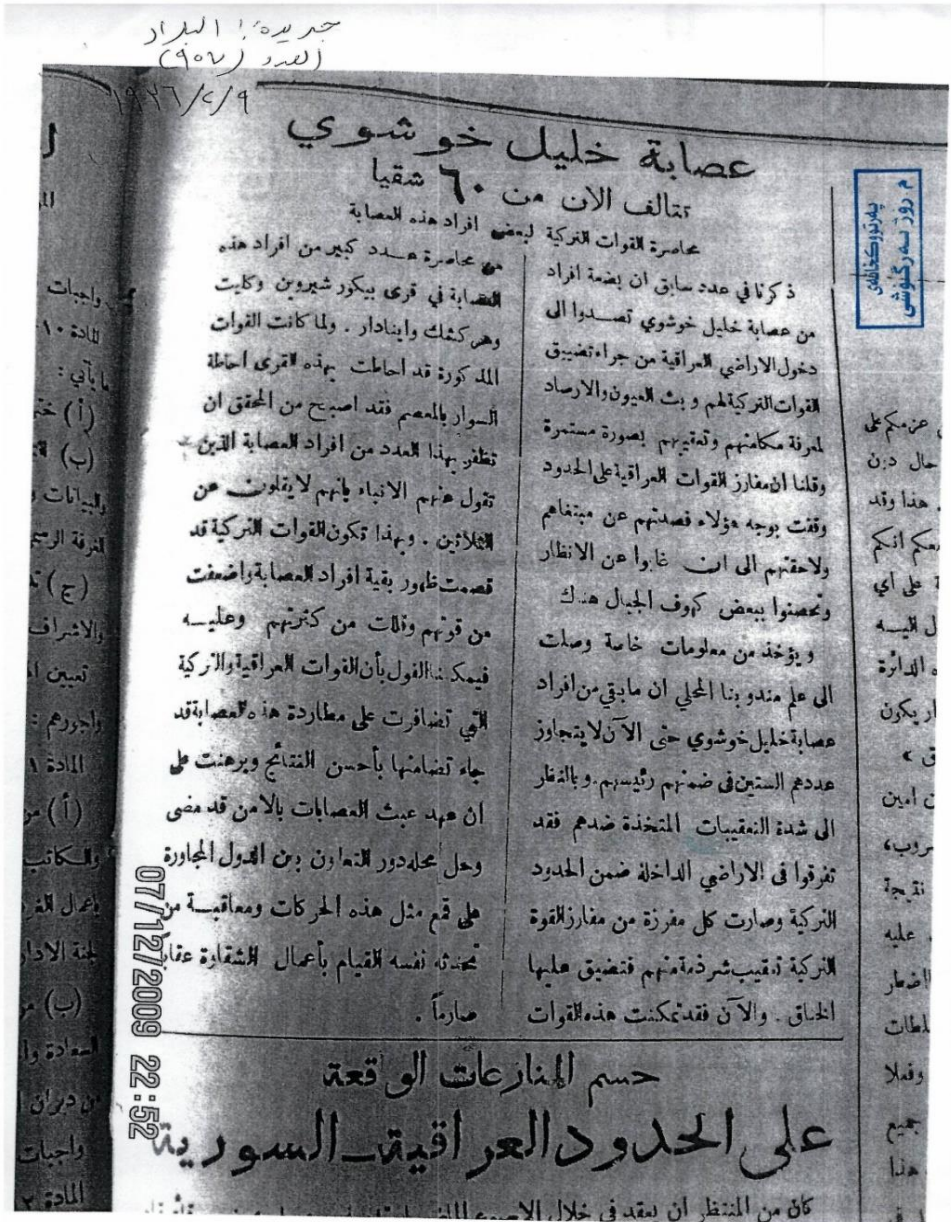 جريدة: البلاد
العدد (٩٥٦)
١٩٣٦/٢/٩
عصابة خليل خوشوي
تتألف الان من ٦٠ شقيا
محاصرة القوات التركية لبعض افراد هذه العصابة
ذكرنا في عدد سابق ان بضعة افراد
من عصابة خليل خوشوي تصدوا الى
دخول الاراضي العراقية من جراء تضييق
القوات التركية لهم وبث العيون والارصاد
لمعرفة مكامنهم وتعقيبهم بصورة مستمرة
وقلنا ان مفارز القوات العراقية على الحدود
وقفت بوجه هؤلاء فصدتهم عن مبتغاهم
ولاحقتهم الى ان غابوا عن الانظار
وتحصنوا ببعض كهوف الجبال هناك
ويؤخذ من معلومات خاصة وصلت
الى علم مندوبنا المحلي ان مابقي من افراد
عصابة خليل خوشوي حتى الآن لايتجاوز
عددهم الستين في ضمنهم رئيسهم. وبالنظر
الى شدة التعقيبات المتخذة ضدهم فقد
تفرقوا في الاراضي الداخلة ضمن الحدود
التركية وصارت كل مفرزة من مفارز القوة
التركية تعقيب شرذمة منهم فتضيق عليها
الخناق. والآن فقد تمكنت هذه القوات
من محاصرة عدد كبير من افراد هذه
العصابة في قرى بيكور شيروين وكايت
وهركشك واينادار. ولما كانت القوات
المذكورة قد احاطت بهذه القرى احاطة
السوار بالمعصم فقد اصبح من المحقق ان
تظفر بهذا العدد من افراد العصابة الذين
تقول عنهم الانباء بأنهم لايقلون عن
الثلاثين. وبهذا تكون القوات التركية قد
قصمت ظهور بقية افراد العصابة واضعفت
من قوتهم وقللت من كثرتهم وعليه
فيمكننا القول بأن القوات العراقية والتركية
التي تضافرت على مطاردة هذه العصابة قد
جاء تضامنها بأحسن النتائج وبرهنت على
ان عهد عبث العصابات بالامن قد مضى
وحل محله دور التعاون بين الدول المجاورة
على قمع مثل هذه الحركات ومعاقبة من
تحدثه نفسه القيام بأعمال الشقاوة عقاباً
صارماً.
حسم المنازعات الواقعة
على الحدود العراقية ـ السورية
كان من المنتظر ان يعقد في خلال الاسبوع
پەرتووکخانەی
م. روژ سەرگلوشی
07/12/2009 22:52
واجبات
المادة ١٠
ما يأتي :
(أ)
(ب)
والبيانات
الغرفة
(ج)
والاشراف
تعيين
واجورهم :
المادة
(أ) من
والكاتب
باعمال
لجنة
(ب)
السعادة
من ديوان
واجبات
المادة ٢
عن مكم على
حال دون
هذا وقد
انكم
على أي
اليه
الدائرة
ار يكون
امين
نتيجة
عليه
وفعلا
جميع
هذا